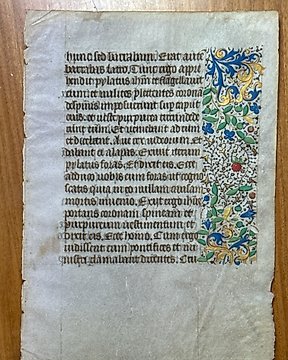 hunc sed barrabam. Erat aute
barrabas latro. Tunc ergo appre
hendit pylatus ihm et flagellauit
et milites plectentes coronā
de spinis imposuerunt sup caput
eius. et ueste purpurea circundede
runt eum. Et ueniebant ad eum
et dicebant. Aue rex iudeorum. Et
dabant ei alapas. Exiuit iterum
pylatus foras. Et dicit eis. Ecce
adduco uobis eum foras ut cogno
scatis quia in eo nullam causam
mortis inuenio. Exiit ergo ihs
portans coronam spineam et
purpureum uestimentum et
dixit eis. Ecce homo. Cum ergo
uidissent eum pontifices et mi
nistri clamabant dicentes. Cru